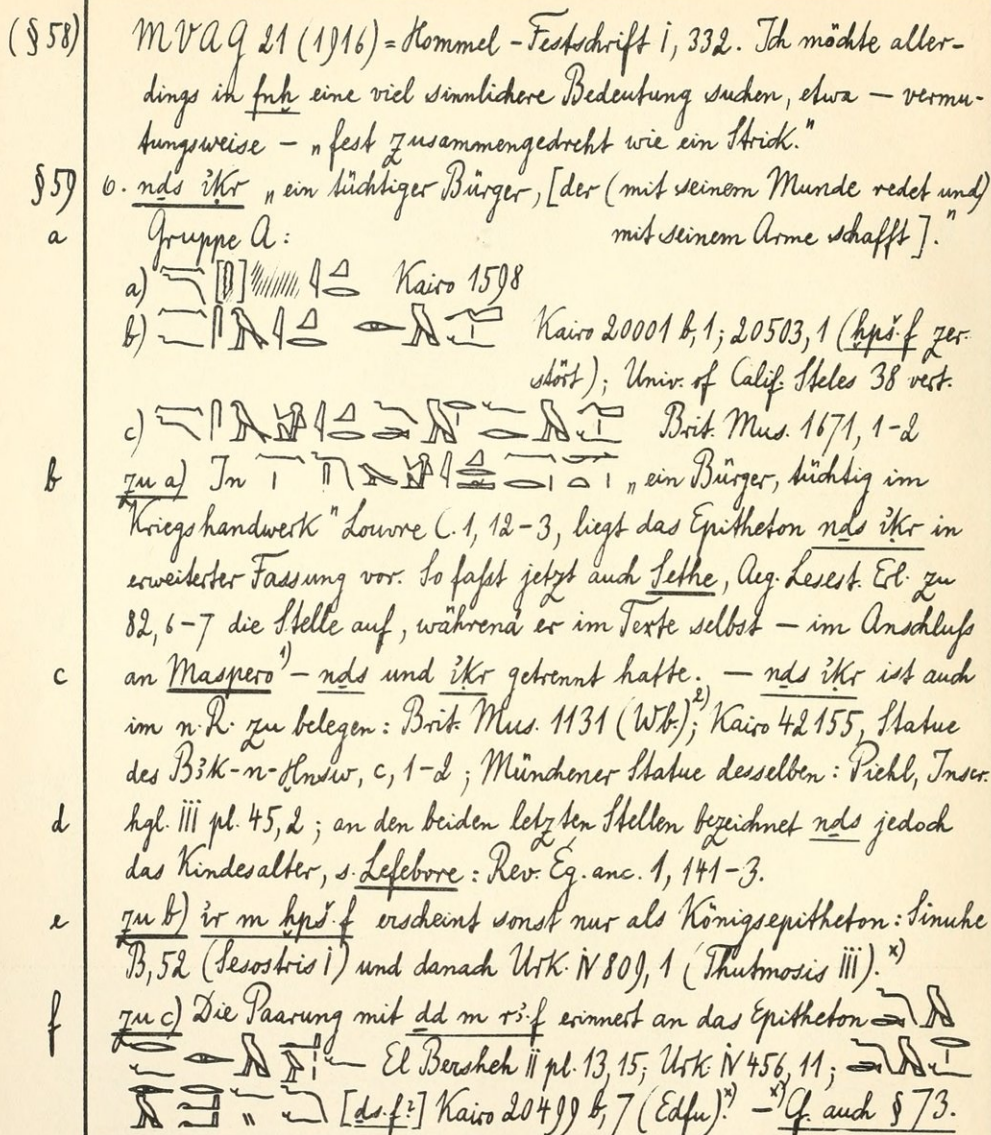 (§ 58) MVAG 21 (1916) = Hommel-Festschrift I, 332. Ich möchte aller-
dings in fnḫ eine viel sinnlichere Bedeutung suchen, etwa — vermu-
tungsweise — „fest zusammengedreht wie ein Strick."
§ 59 6. nḏs ἰḳr „ein tüchtiger Bürger, [der (mit seinem Munde redet und)
a Gruppe A: mit seinem Arme schafft]."
a) Kairo 1598
b) Kairo 20001 b, 1; 20503, 1 (ḫpš·f zer-
stört); Univ. of Calif. Steles 38 vert.
c) Brit. Mus. 1671, 1-2
b zu a) In „ein Bürger, tüchtig im
Kriegshandwerk" Louvre C. 1, 12-3, liegt das Epitheton nḏs ἰḳr in
erweiterter Fassung vor. So faßt jetzt auch Sethe, Aeg. Lesest. Erl. zu
82, 6-7 die Stelle auf, während er im Texte selbst — im Anschluß
c an Maspero 1) — nḏs und ἰḳr getrennt hatte. — nḏs ἰḳr ist auch
im n. R. zu belegen: Brit. Mus. 1131 (Wb.) 2); Kairo 42155, Statue
des Bꜣk-n-Ḫnsw, c, 1-2; Münchener Statue desselben: Piehl, Inscr.
d hgl. III pl. 45, 2; an den beiden letzten Stellen bezeichnet nḏs jedoch
das Kindesalter, s. Lefebvre: Rev. Ég. anc. 1, 141-3.
e zu b) ἰr m ḫpš·f erscheint sonst nur als Königsepitheton: Sinuhe
B, 52 (Sesostris I) und danach Urk. IV 809, 1 (Thutmosis III). x)
f zu c) Die Paarung mit ḏd m rꜣ·f erinnert an das Epitheton
El Bersheh II pl. 13, 15; Urk. IV 456, 11;
[ds·f?] Kairo 20499 b, 7 (Edfu). x) — x) Cf. auch § 73.